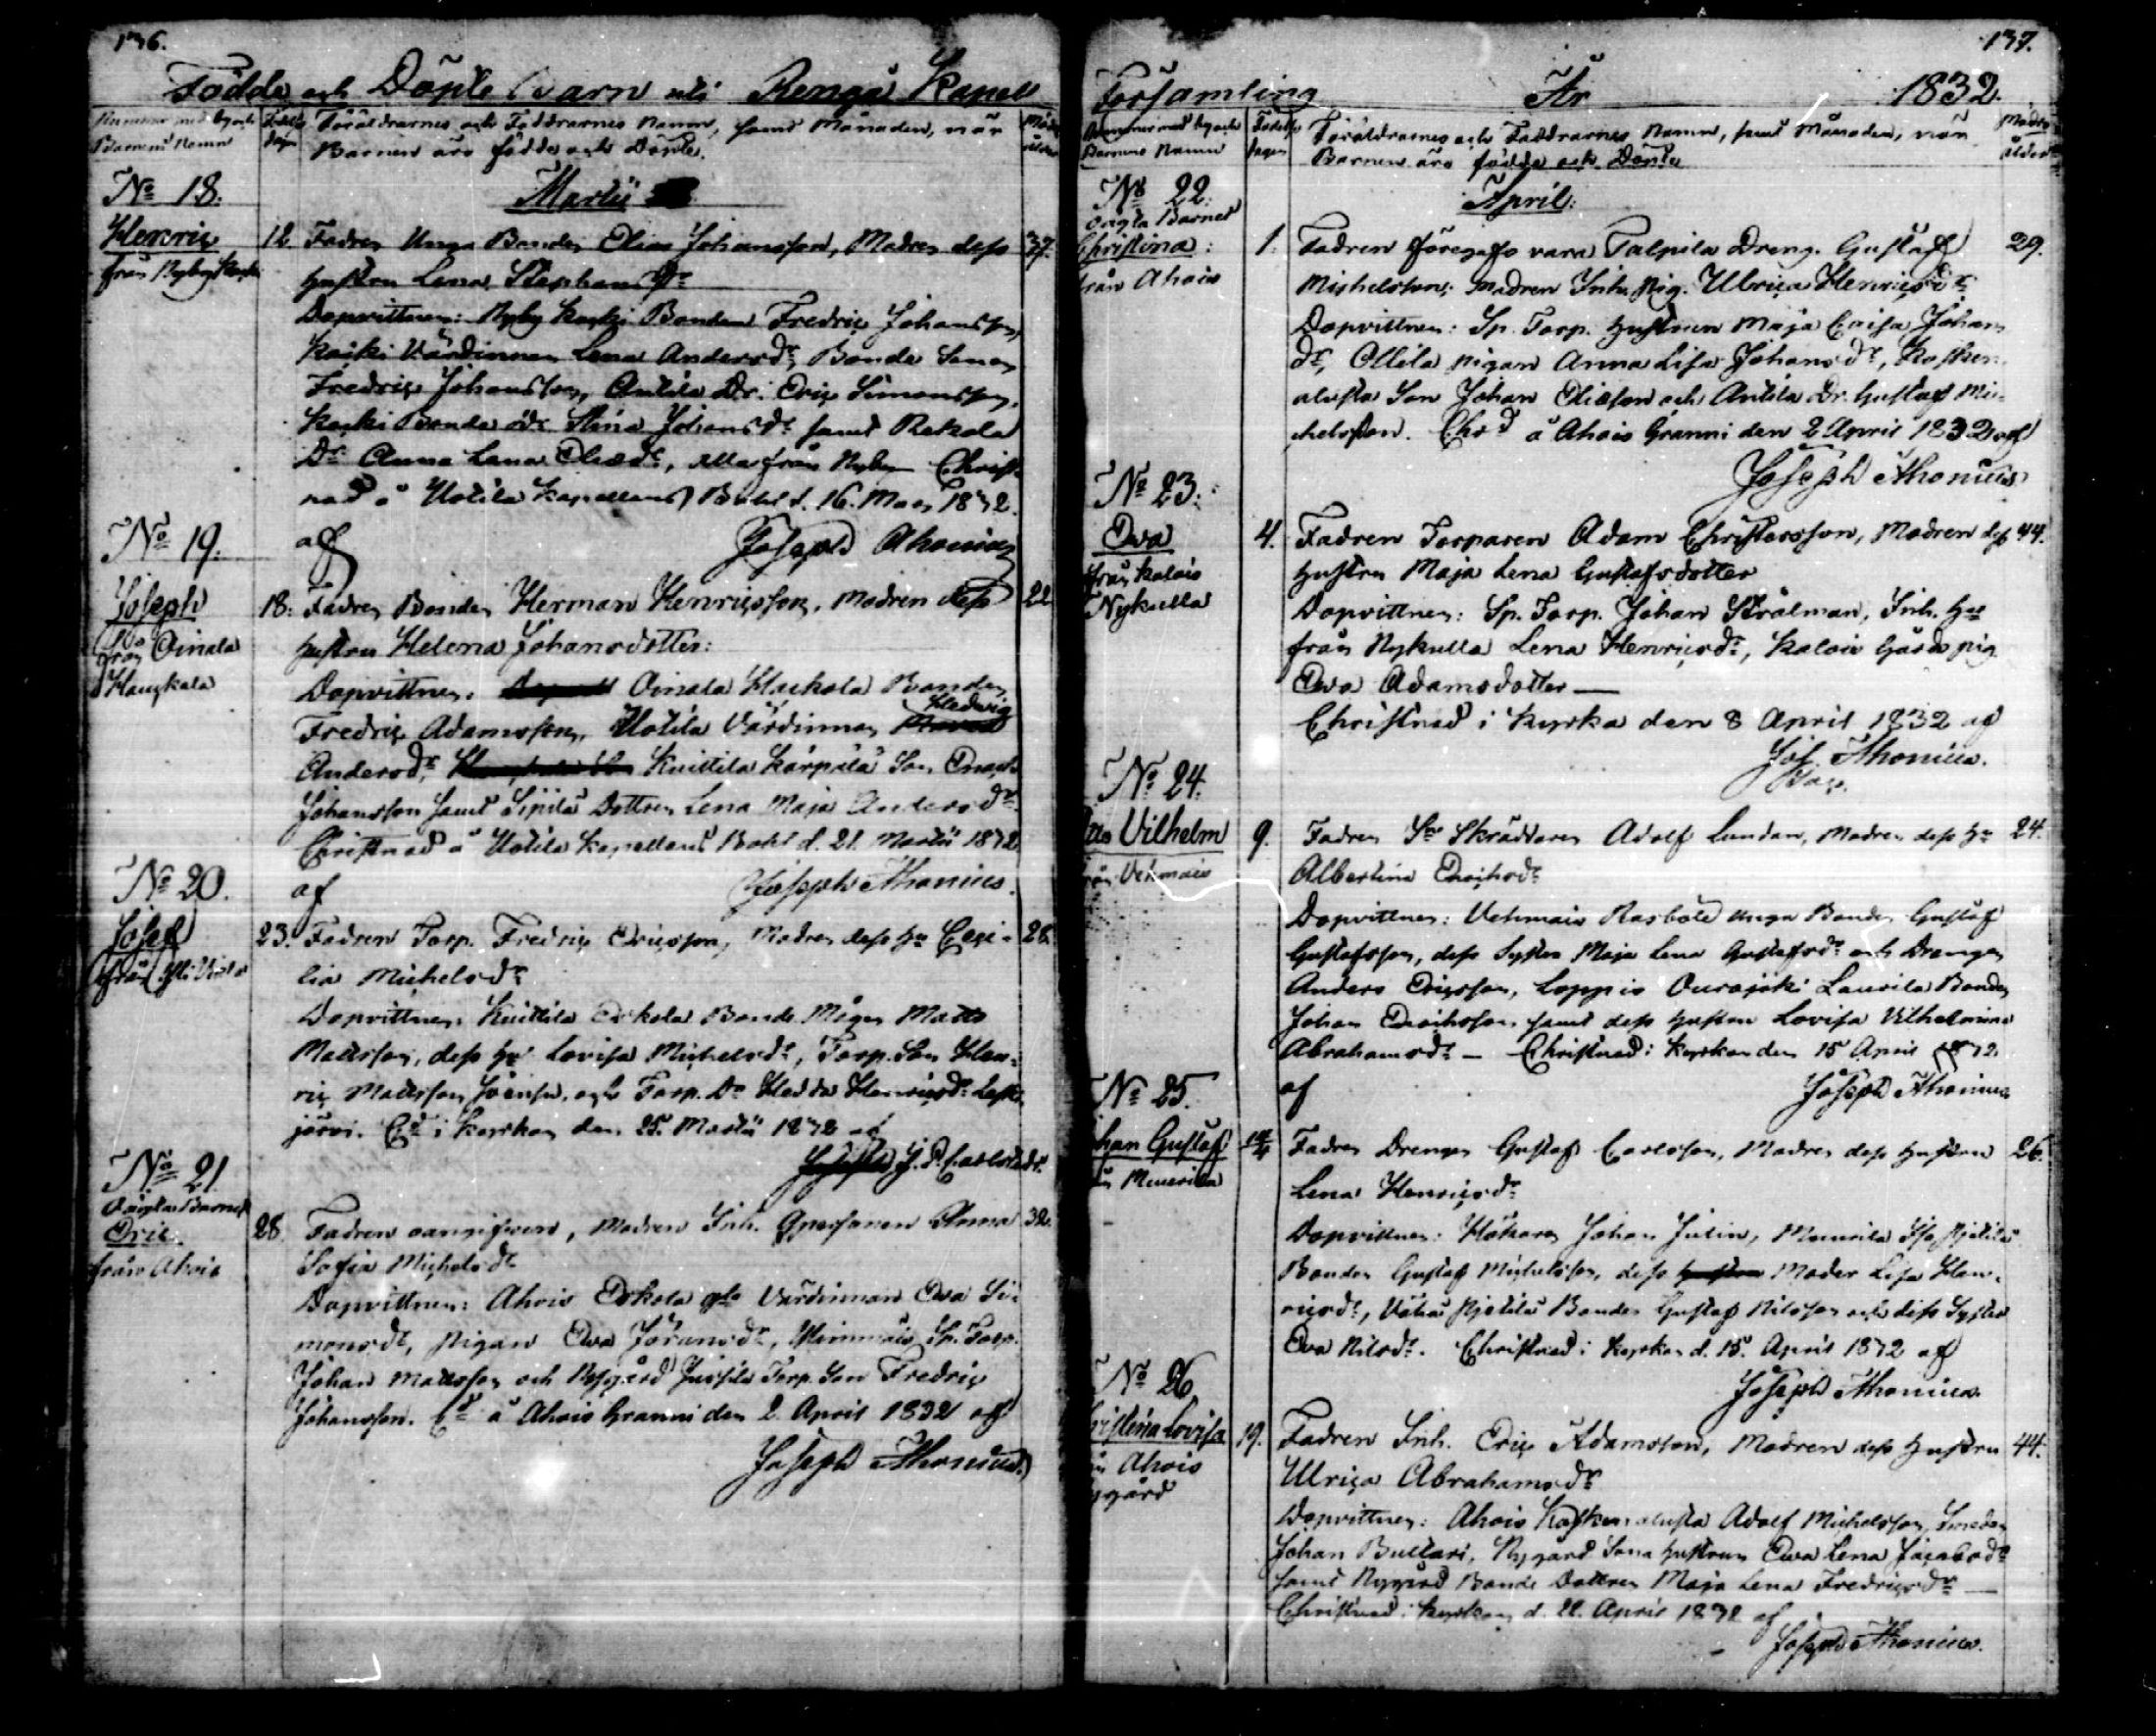 136.
Födde och Döpte Barn uti Rengo Kapell
Nummer med byn och Barnens Namn
Födelse dagen
Föräldrarnes och Faddrarnes Namn, samt Månaden, när
Barnen äro födde och Döpte.
Modrens ålder
Martii
No 18.
Henric
från Nyby Kaski
12
Fadren Unga Bonden Elias Johansson, Madren dess
37.
hustru Lena Stephansdr
Dopvittnen: Nyby Kaski Bonden Fredric Johansson,
Kaiki Värdinnan Lena Andersdr, Bonde Sonen
Fredric Johansson, Anttila Dr. Eric Simonsson,
Kaski Bonde dr Stina Johansdr samt Rekola
Dr Anna Lena Eliædr, alla från Nyby Christ-
nad å Uotila Kapellans Bohl d. 16. Mars 1832.
af
Joseph Ahonius
No 19.
Joseph
från Oinala
Haugkala
18.
Fadren Bonden Herman Henricsson, Modren dess
22
hustru Helena Johansdotter:
Dopvittnen. Oinala Haukola Bonden
Fredric Adamsson, Uotila Värdinnan Hedwig
Andersdr, Kuittila Kärpälä Son Enoch
Johansson samt Sipilä Dottren Lena Maja Andersdr
Christnad å Uotila Kapellans Bohl d. 21. Martii 1832
af
Joseph Ahonius.
No 20.
Josef
från
23.
Fadren Torp. Fredric Ericsson, Madren dess Hu Ceci-
28.
lia Michelsdr
Dopvittnen. Kuittila Erkola Bonde Mågen Matts
Mattsson, dess Hu Lovisa Michelsdr, Torp. Son Hen-
ric Mattsson och Torp. Dr Hedda Henricsdr
järvi. Cd i Kyrkan den 25. Martii 1832 af
J. F. Carlstedt.
No 21.
Oägta Barnet
Eric
från Ahois
28.
Fadren oangifwen, Madren Inh. Qvinsonen Anna
32.
Sofia Michelsdr
Dopvittnen: Ahois Erkola gla Värdinnan Ewa Si-
monsdr, Pigan Ewa Jöransdr, Sp. Torp.
Johan Mattsson och Nygård Jussila Torp. Son Fredric
Johansson. Cd å Ahois Granni den 2. April 1832 af
Joseph Ahonius.
137.
Församling År 1832.
Nummer med byn och Barnens Namn
Födelse dagen
Föräldrarnes och Faddrarnes Namn, samt Månaden, när
Barnen äro födde och Döpte
Modrens ålder
April:
No 22.
Oägta Barnet
Christina:
från Ahois
1.
Fadren föregafs vara Talpila Dreng. Gustaf
29.
Michelsson; madren Inh. Pig. Ulrica Henricsdr
Dopvittnen: Sp. Torp. Hustrun Maja Caisa Johans
dr, Ollila pigan Anna Lisa Johansdr, Kosken-
alusta Son Johan Eliæson och Anttila Dr. Gustaf Mi-
chelsson. Chrd å Ahois Granni den 2 April 1832 af
Joseph Ahonius
No 23.
Ewa
från Kalois
Nykulla
4.
Fadren Torparen Adam Christersson, Madren dess
44.
hustru Maja Lena Gustafsdotter
Dopvittnen: Sp. Torp. Johan Strålman, Inh. Hu
från Nykulla Lena Henricsdr, Kalois Gårds pig.
Ewa Adamsdotter
Christnad i Kyrka den 8 April 1832 af
Jos. Ahonius.
No 24.
Vilhelm
från Vehmais
9.
Fadren Sn Skräddaren Adolf Lundan, Madren dess Hu
24.
Albertina Enochsdr
Dopvittnen: Vehmais Rasböle unga Bonden Gustaf
Gustafsson, dess Syster Maja Lena Gustafsdr och Drengen
Anders Ericsson, Loppis Ourajoki Laurila Bonden
Johan Enochsson samt dess hustru Lovisa Vilhelmina
Abrahamsdr Christnad i Kyrkan den 15 April 1832.
af
Joseph Ahonius
No 25.
Johan Gustaf
Muurila
Fadren Drengen Gustaf Carlsson, Madren dess hustru
26.
Lena Henricsdr
Dopvittnen: Hökaren Johan Julin, Muurila Iso Pietilä
Bonden Gustaf Michelsson, dess Moder Lisa Hen-
ricsdr, Vähä Pietilä Bonden Gustaf Nilsson och dess Syster
Ewa Nilsdr. Christnad i Kyrkan d. 15. April 1832 af
Joseph Ahonius.
No 26
Christina Lovisa
Ahois
Nygård
19.
Fadren Inh. Eric Adamsson, Madren dess hustru
44.
Ulrica Abrahamsdr
Dopvittnen: Ahois Koskenalusta Adolf Michelsson, Smeden
Johan Bullari, Nygård Sona hustrun Ewa Lena Jacobsdr
samt Nygård Bonde Dottren Maja Lena Fredricsdr
Christnad i Kyrkan d. 22. April 1832 af
Joseph Ahonius.